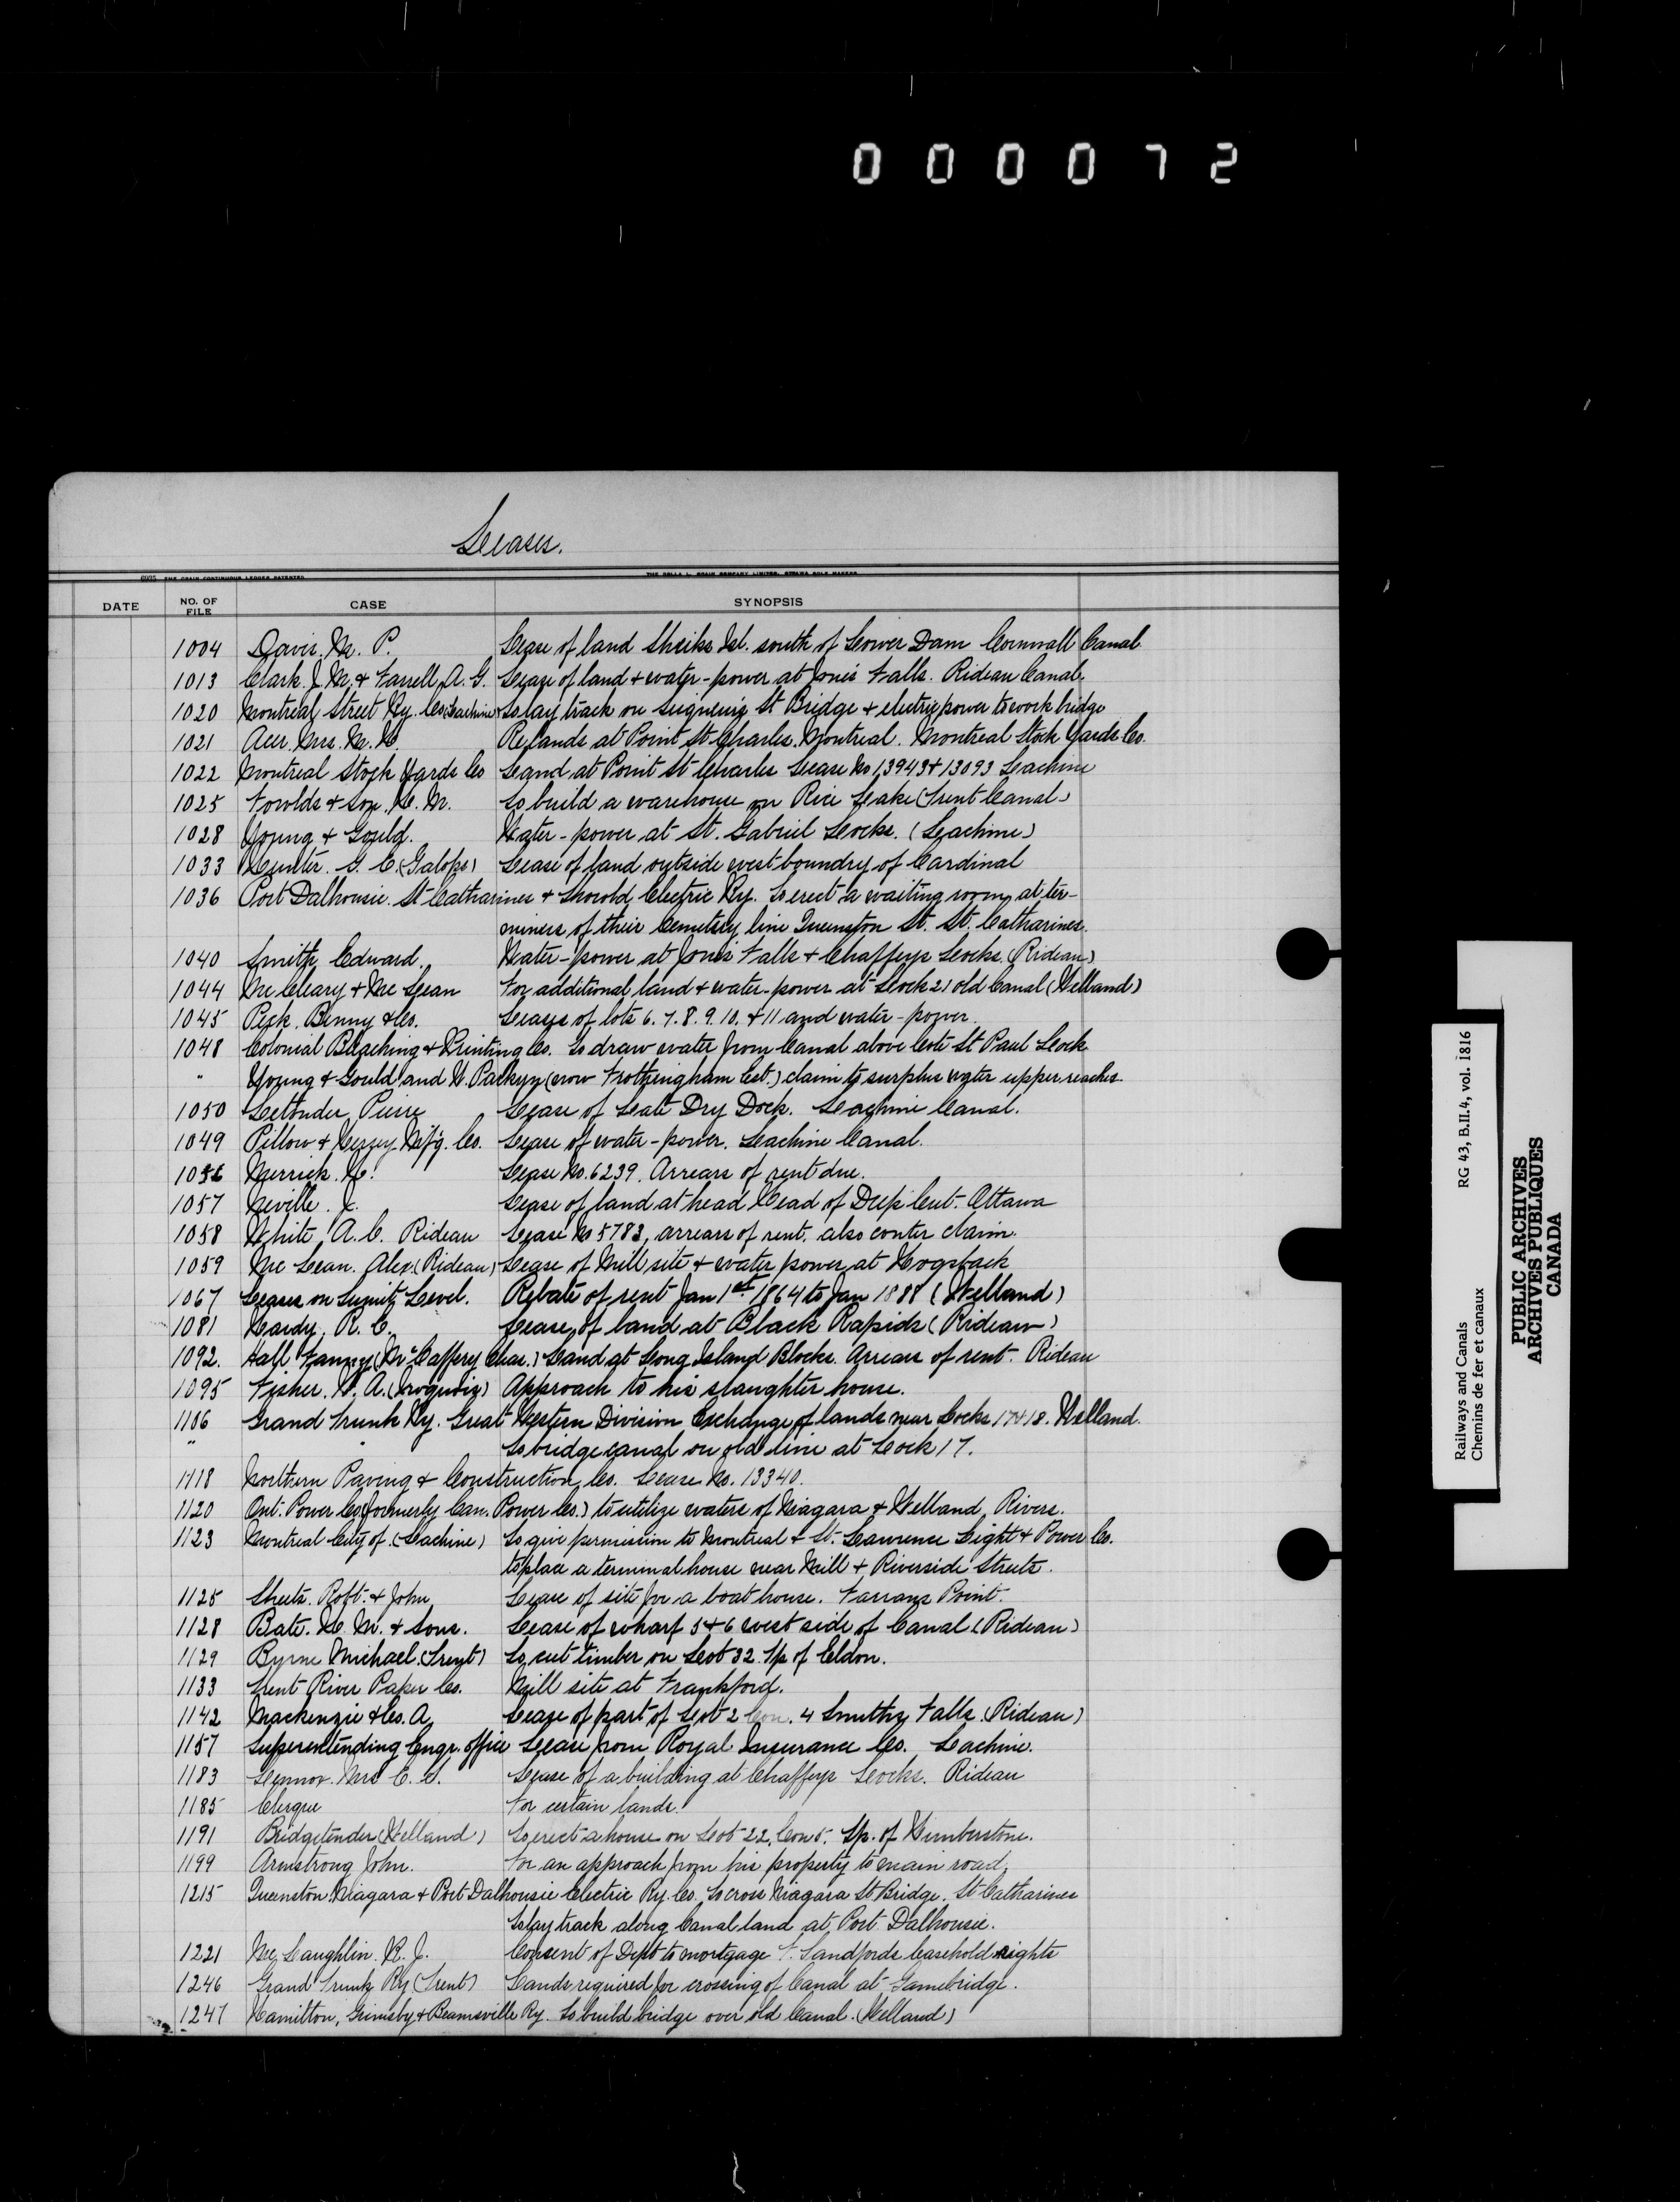 000072
Leases.
6935 THE GRAIN CONTINUOUS LEDGER PATENTED
THE ROLLA L. CRAIN COMPANY LIMITED, OTTAWA SOLE MAKERS
DATE NO. OF FILE CASE SYNOPSIS
1004 Davis. M. P. Lease of land Sheiks Isl. south of Lower Dam Cornwall Canal
1013 Clark. J. M. & Farrell, A. G. Lease of land & water-power at Jones Falls. Rideau Canal.
1020 Montreal Street Ry. Co. (Lachine) To lay track on Seigneurs St Bridge & electric power to work bridge
1021 Acer. Mrs. M. Re lands at Point St Charles. Montreal. Montreal Stock Yards Co.
1022 Montreal Stock Yards Co Land at Point St Charles Lease No 13943 & 13093 Lachine
1025 Fowlds & Son. H. M. To build a warehouse on Rice Lake (Trent Canal)
1028 Young & Gould. Water-power at St. Gabriel Locks. (Lachine)
1033 Hunter. G. C. (Galops) Lease of land outside west boundry of Cardinal
1036 Port Dalhousie. St Catharines & Thorold Electric Ry. To erect a waiting room at ter-
minus of their Cemetery line Queenston St. St. Catharines.
1040 Smith, Edward. Water-power at Jones Falls & Chaffeys Locks. (Rideau)
1044 Mc Cleary & Mc Lean For additional land & water-power at Lock 21 old Canal (Welland)
1045 Peck. Benny & Co. Leases of lots 6. 7. 8. 9. 10. & 11 and water-power.
1048 Colonial Bleaching & Printing Co. To draw water from Canal above Cote St Paul Lock
" Young & Gould and W. Parkyn (now Frothingham Est.) claim to surplus water upper reaches.
1050 Letonder, Pierre Lease of Dry Dock. Lachine Canal.
1049 Pillow & Hersey M'f'g. Co. Lease of water-power. Lachine Canal.
1056 Merrick. H. Lease No. 6239. Arrears of rent due.
1057 Neville. J. Lease of land at head Cead of Deep Cut. Ottawa
1058 White A. C. Rideau Lease No 5783, arrears of rent. also conter claim.
1059 Mc Lean. Alex. (Rideau) Lease of Mill site & water power at Hogsback
1067 Leases on Sumit Level. Rebate of rent Jan 1st 1864 to Jan 1888 (Welland)
1081 Hardy, R. C. Lease of land at Black Rapids (Rideau)
1092. Hall Fanny (McCaffery Chas.) Land at Long Island Blocks. Arrears of rent. Rideau
1095 Fisher. W. A. (Iroquois) Approach to his slaughter house.
1106 Grand Trunk Ry. Great Western Division Exchange of lands near Locks 17 & 18. Welland.
" " To bridge canal on old line at Lock 17.
1118 Northern Paving & Construction Co. Lease No. 13340.
1120 Ont. Power Co. (formerly Can. Power Co.) to utilize waters of Niagara & Welland Rivers.
1123 Montreal City of. (Lachine) To give permission to Montreal & St. Lawrence Light & Power Co.
to place a terminal house near Mill & Riverside Streets.
1125 Sheets. Robt. & John Lease of site for a boat house. Farrans Point.
1128 Bate. H. M. & Sons. Lease of wharf 5 & 6 west side of Canal (Rideau)
1129 Byrne Michael. (Trent) To cut timber on Lot 32. Tp of Eldon.
1133 Trent River Paper Co. Mill site at Frankford.
1142 Mackenzie & Co. A. Lease of part of Lot 2 Con. 4 Smiths Falls (Rideau)
1157 Superintending Engr. office Lease from Royal Insurance Co. Lachine.
1183 Lennox. Mrs E. S. Lease of a building at Chaffeys Locks. Rideau
1185 Clergue For certain lands.
1191 Bridgetender (Welland) To erect a house on Lot 22, Con 5. Tp. of Humberstone.
1199 Armstrong John. For an approach from his property to main road.
1215 Queenston Niagara & Port Dalhousie Electric Ry. Co. To cross Niagara St Bridge. St Catharines
To lay track along Canal land at Port Dalhousie.
1221 Mc Laughlin. R. J. Consent of Dept to mortgage F. Sandfords leasehold rights
1246 Grand Trunk Ry (Trent) Lands required for crossing of Canal at Gamebridge.
1247 Hamilton, Grimsby & Beamsville Ry. To build bridge over old Canal. (Welland)
Railways and Canals RG 43, B.II.4, vol. 1816
Chemins de fer et canaux
PUBLIC ARCHIVES
ARCHIVES PUBLIQUES
CANADA